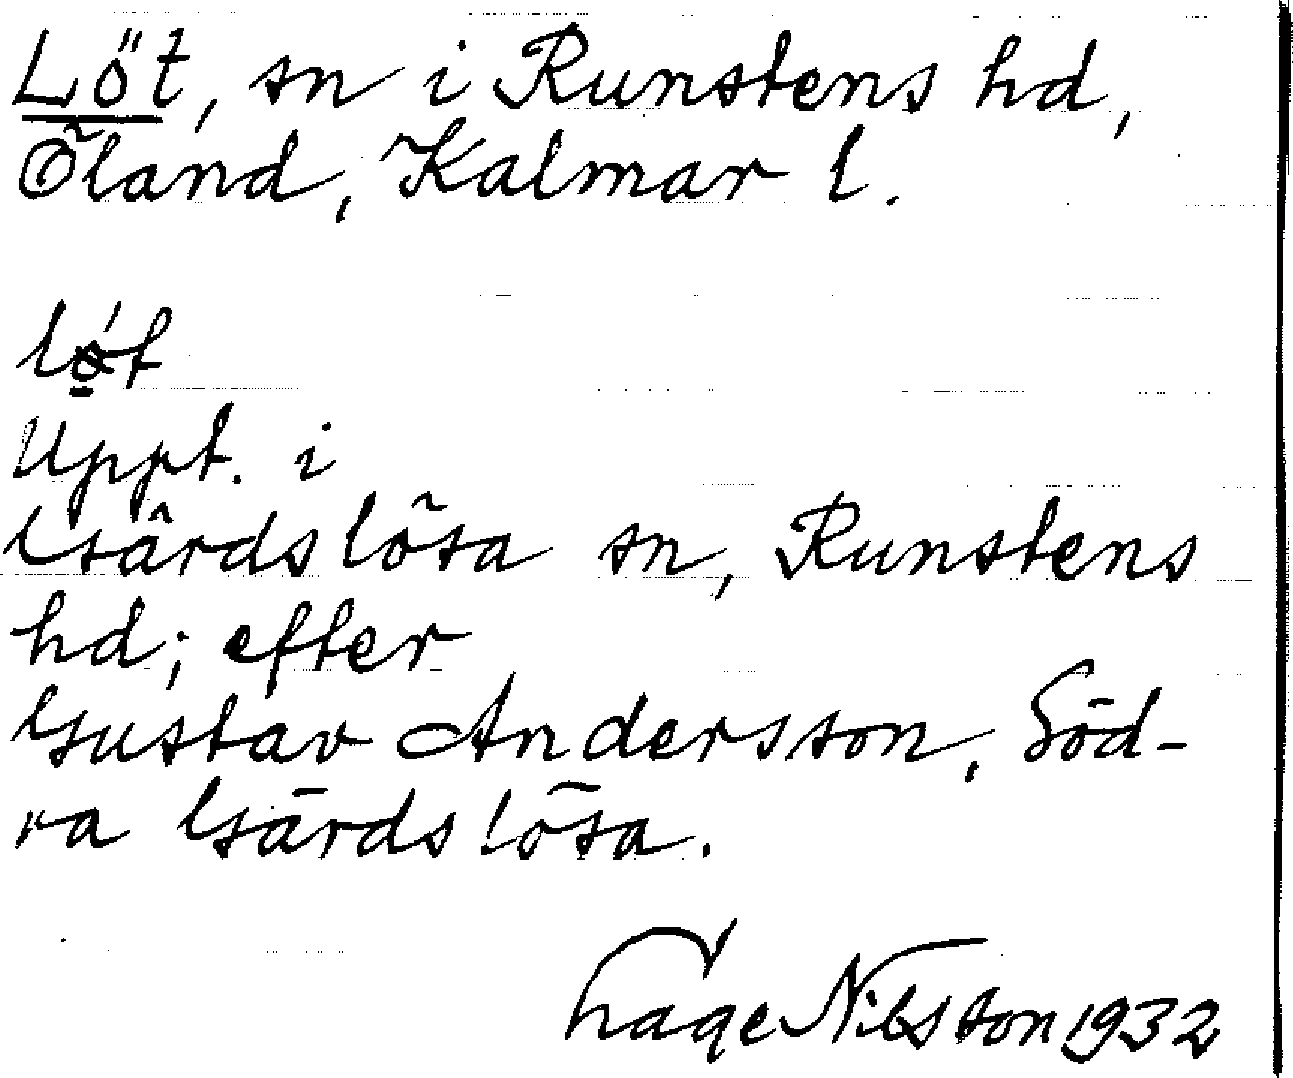 Löt, sn i Runstens hd,
Öland, Kalmar l.
Uppt. i
Gärdslösa sn, Runstens
hd; efter
Gustav Andersson, Söd-
ra Gärdslösa.
Hage Nilsson 1932